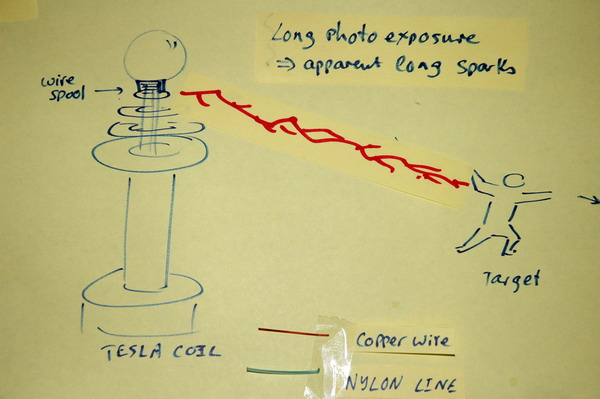 Long photo exposure
⇒ apparent long sparks
wire
spool →
Target
TESLA COIL
COPPER WIRE
NYLON LINE